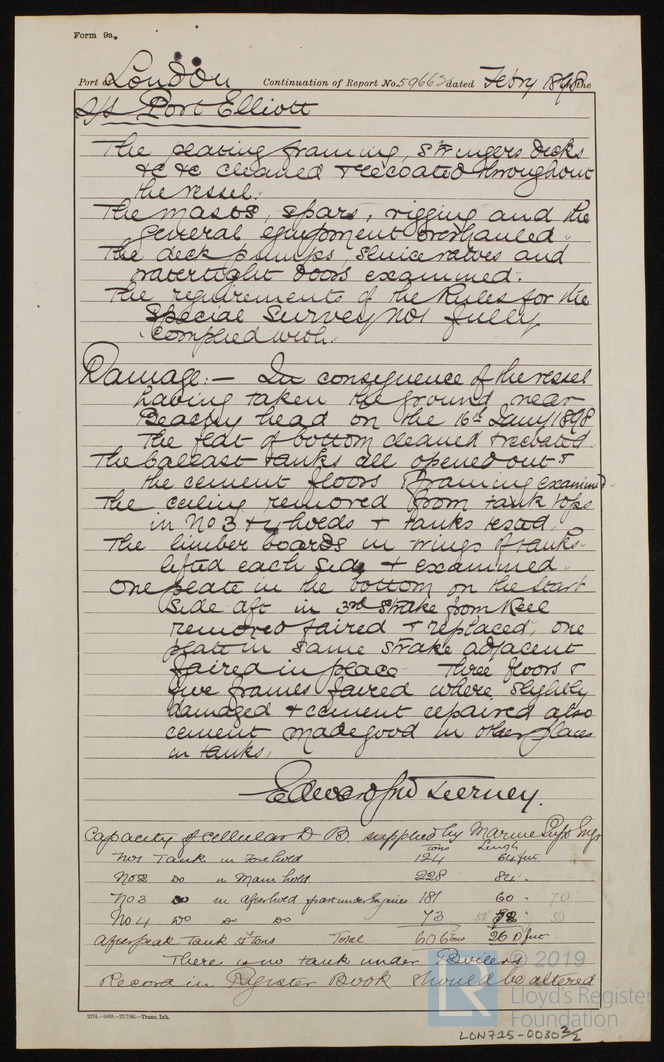 Form 9a.
Port of London Continuation of Report No. 59663 dated Febry 1898 on the
S/S Port Elliott
The plating framing, stringers decks
&c &c cleaned & recoated throughout
the vessel.
The masts, spars, rigging and the
general equipment overhauled.
The deck pumps, sluice valves and
watertight doors examined.
The requirements of the Rules for the
Special Survey not fully
complied with.
Damage:— In consequence of the vessel
having taken the ground near
Beachy head on the 16th Jany 1898
The flat of bottom cleaned & recoated
The ballast tanks all opened out &
the cement floors & framing examined
The ceiling removed from tank tops
in No 3 & 4 holds & tanks tested.
The limber boards in wings of tanks
lifted each side & examined.
One plate in the bottom on the Starb
side aft in 3rd strake from keel
removed faired & replaced, one
plate in same strake adjacent
faired in place Three floors &
five frames faired where slightly
damaged & cement repaired also
cement made good in other places
in tanks.
Tierney.
Capacity of cellular D B. supplied by Marine Supt Engr
tons Length
No1 Tank in Fore hold 124 64 feet
No2 Do in Main hold 228 84 "
No3 Do in after hold & part under Engines 181 60 " 70
No4 Do Do Do 73 50
After peak Tank 57 tons Total 606 tons 260 feet
There is no tank under Boilers
Record in Register Book should be altered
© 2019
LR
Lloyd's Register
Foundation
2174—5000—27/7/95.—Trans. Ink.
LON715-0030 2/2